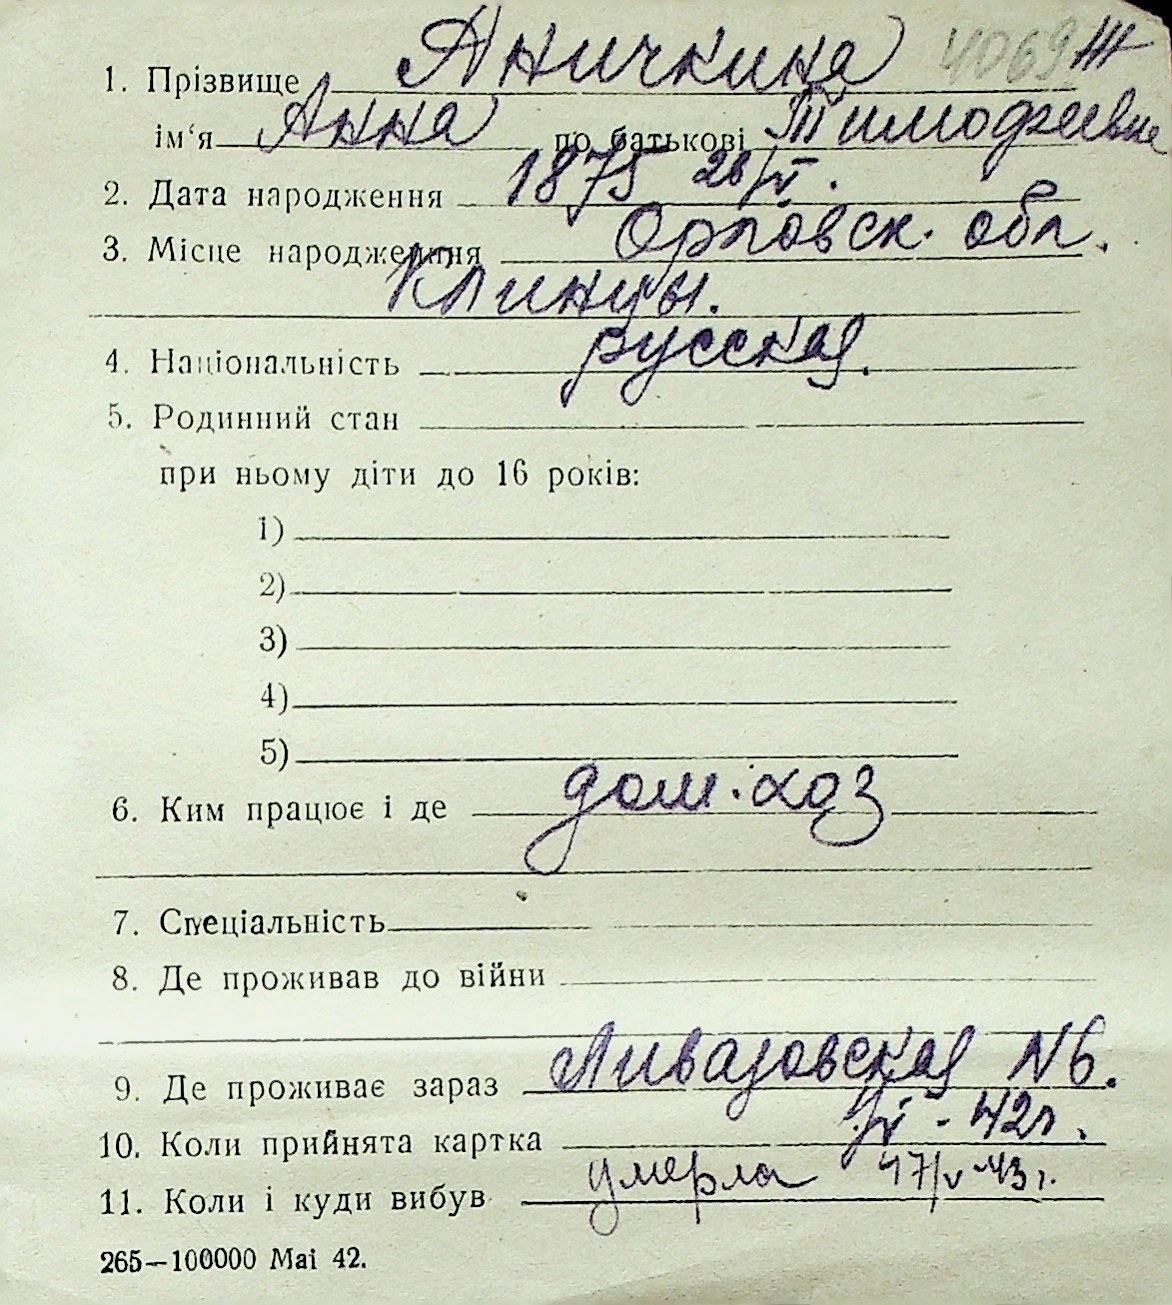 4069 Ш
1. Прізвище Аничкина
ім‘я Анна по батькові Тимофеевна
2. Дата народження 1875 26/VI.
3. Місце народження Орловск. обл.
Клинцы.
4. Національність русская.
5. Родинний стан
при ньому діти до 16 років:
1)
2)
3)
4)
5)
6. Ким працює і де дом. хоз
7. Спеціальність
8. Де проживав до війни
9. Де проживає зараз Айвазовская N6.
10. Коли прийнята картка - 42г.
11. Коли і куди вибув умерла 17/V-43 г.
265—100000 Mai 42.